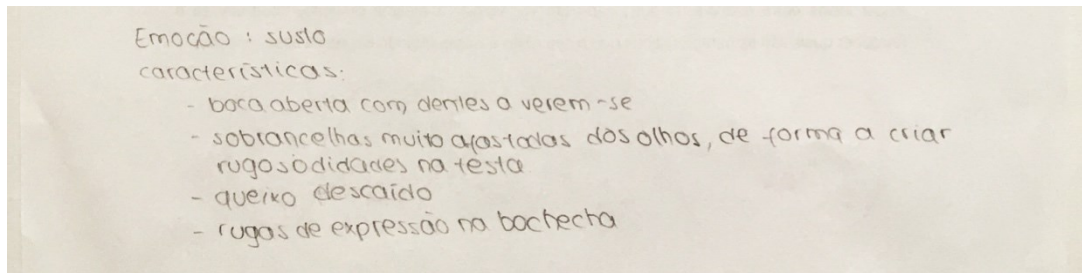 Emoção : susto
características:
- boca aberta com dentes a verem-se
- sobrancelhas muito afastadas dos olhos, de forma a criar
rugosodidades na testa
- queixo descaído
- rugas de expressão na bochecha